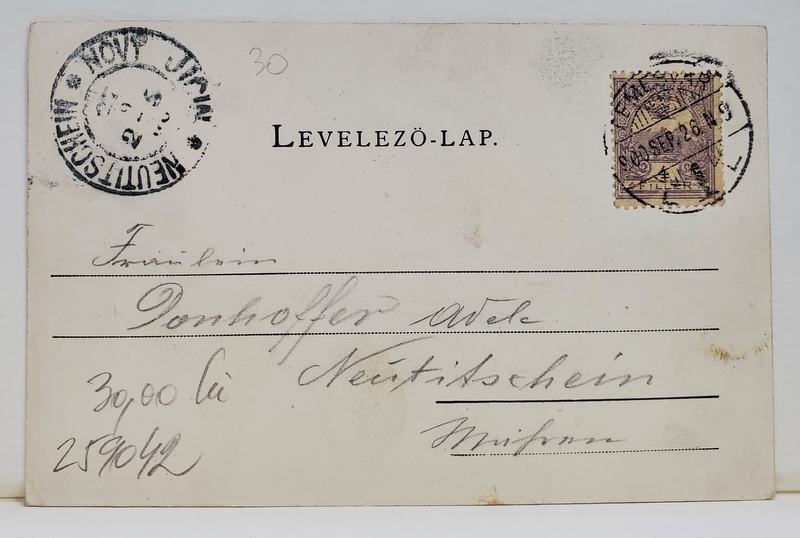 NOVÝ JIČIN * NEUTITSCHEIN *
30
LEVELEZÖ-LAP.
900 SEP. 26
FILLÉR
Fräulein
Donhoffer Adele
Neutitschein
Mähren
30,00 lei
259042